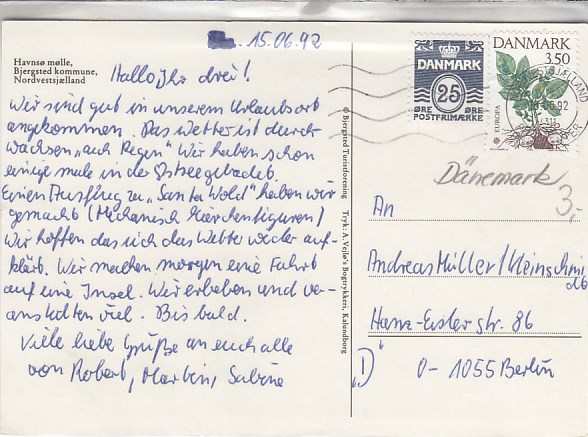 15.06.92
Havnsø mølle,
Bjergsted kommune,
Nordvestsjælland
Hallo Ihr drei!
Wir sind gut in unserem Urlaubsort
angekommen. Das Wetter ist durch
wachsen „auch Regen" Wir haben schon
einige male in der Ostsee gebadet.
Einen Ausflug zu „Santa Wold" haben wir
gemacht (Mechanisch Märchenfiguren)
Wir hoffen das sich das Wetter wieder auf-
klärt. Wir machen morgen eine Fahrt
auf eine Insel. Wir erleben und ver-
anstalten viel. Bis bald.
Viele liebe Grüße an euch alle
von Robert, Martin, Sabine
© Bjergsted Turistforening Tryk: A. Vejlø's Bogtrykkeri, Kalundborg
DANMARK
25
ØRE ØRE
POSTFRIMÆRKE
DANMARK
3.50
EUROPA
Dänemark
3,-
An
Andreas Müller/Kleinschmi
dt
Hanz-Eisler str. 86
„D" O-1055 Berlin